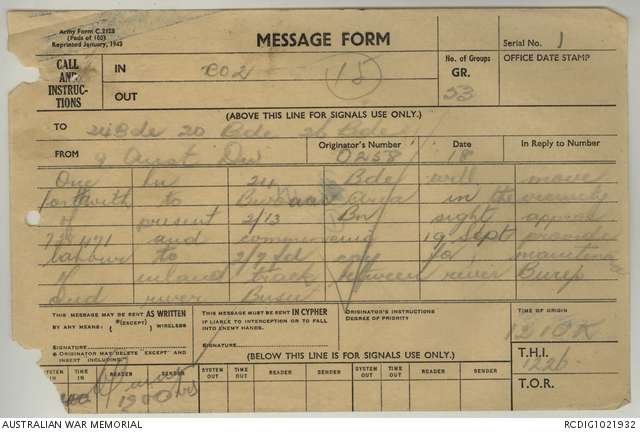 Army Form C.2128
(Pads of 100)
Reprinted January, 1943
MESSAGE FORM
Serial No. 1
CALL AND INSTRUCTIONS
IN CO2
(18)
No. of Groups
GR.
53
OFFICE DATE STAMP
OUT
(ABOVE THIS LINE FOR SIGNALS USE ONLY.)
TO 24 Bde 20 Bde 26 Bde
FROM 9 Aust Div
Originator's Number
O258
Date
18
In Reply to Number
One in 24 Bde will move
forthwith to area in the vicinity
of present 2/13 Bn sight approx
and commencing 19 Sept provide
labour to 2/7 Fd coy for
of inland track between river Burep
and river Busu
THIS MESSAGE MAY BE SENT AS WRITTEN
BY ANY MEANS. *(EXCEPT) WIRELESS
SIGNATURE
ORIGINATOR MAY DELETE "EXCEPT" AND INSERT INCLUDING"
THIS MESSAGE MUST BE SENT IN CYPHER
IF LIABLE TO INTERCEPTION OR TO FALL
INTO ENEMY HANDS.
SIGNATURE
ORIGINATOR'S INSTRUCTIONS
DEGREE OF PRIORITY
TIME OF ORIGIN
1210K
(BELOW THIS LINE IS FOR SIGNALS USE ONLY.)
T.H.I.
1226
T.O.R.
SYSTEM IN TIME IN READER SENDER SYSTEM OUT TIME OUT READER SENDER SYSTEM OUT TIME OUT READER SENDER
1900 hrs
AUSTRALIAN WAR MEMORIAL
RCDIG1021932